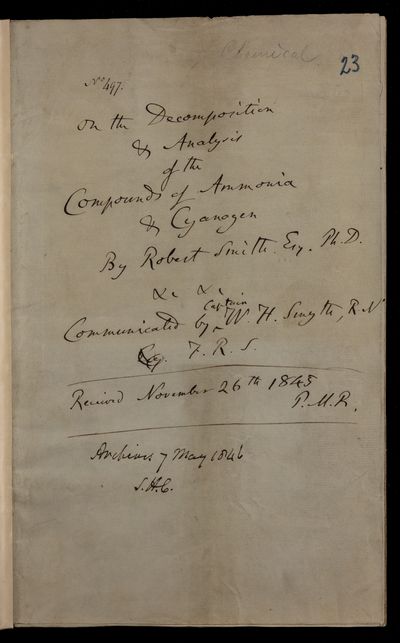 Chemical
23
No 497.
On the Decomposition
& Analysis
of the
Compounds of Ammonia
& Cyanogen
By Robert Smith Esq. Ph.D.
&c &c
Captain
Communicated by W. H. Smyth, R.N
Esq. F. R. S.
Received November 26th 1845
P.M.R.
Archives 7 May 1846
S.H.C.